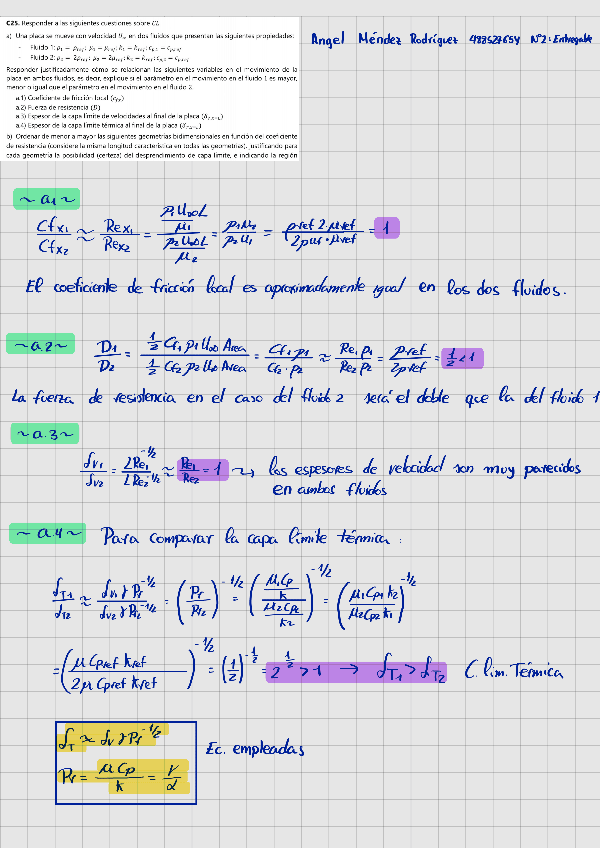 C25. Responder a las siguientes cuestiones sobre CL
a) Una placa se mueve con velocidad U∞ en dos fluidos que presentan las siguientes propiedades:
- Fluido 1: ρ1 = ρref; μ1 = μref; k1 = kref; cp,1 = cp,ref
- Fluido 2: ρ2 = 2ρref; μ2 = 2μref; k2 = kref; cp,2 = cp,ref
Responder justificadamente cómo se relacionan las siguientes variables en el movimiento de la
placa en ambos fluidos, es decir, explique si el parámetro en el movimiento en el fluido 1 es mayor,
menor o igual que el parámetro en el movimiento en el fluido 2.
a.1) Coeficiente de fricción local (cfx)
a.2) Fuerza de resistencia (D)
a.3) Espesor de la capa límite de velocidades al final de la placa (δv,x=L)
a.4) Espesor de la capa límite térmica al final de la placa (δT,x=L)
b) Ordenar de menor a mayor las siguientes geometrías bidimensionales en función del coeficiente
de resistencia (considere la misma longitud característica en todas las geometrías), justificando para
cada geometría la posibilidad (certeza) del desprendimiento de capa límite, e indicando la región
Angel Méndez Rodríguez 48852765Y Nº2: Entregable
~ a1 ~
Cfx1/Cfx2 ≈ Rex1/Rex2 = (ρ1U∞L/μ1)/(ρ2U∞L/μ2) = ρ1μ2/ρ2μ1 = ρref 2·μref/2ρref·μref = 1
El coeficiente de fricción local es aproximadamente igual en los dos fluidos.
~ a.2 ~ D1/D2 = (1/2 Cf1 ρ1 U∞ Area)/(1/2 Cf2 ρ2 U∞ Area) = Cf1·ρ1/Cf2·ρ2 ≈ Re1 ρ1/Re2 ρ2 = ρref/2ρref = 1/2 < 1
La fuerza de resistencia en el caso del fluido 2 será el doble que la del fluido 1
~ a.3 ~
δv1/δv2 = LRe1^-1/2 / LRe2^-1/2 ≈ Re1/Re2 = 1 ~> los espesores de velocidad son muy parecidos
en ambos fluidos
~ a.4 ~ Para comparar la capa límite térmica :
δT1/δT2 ≈ δv1 γ Pr^-1/2 / δv2 γ Pr2^-1/2 = (Pr/Pr2)^-1/2 = ((μ1Cp/k)/(μ2Cp2/k2))^-1/2 = (μ1Cp1 k2/μ2Cp2 k1)^-1/2
= (μ Cpref kref/2μ Cpref kref)^-1/2 = (1/2)^-1/2 = 2^1/2 > 1 → δT1 > δT2 C. lim. Térmica
δT ≈ δv γ Pr^-1/2
Pr = μ Cp/k = ν/α
Ec. empleadas